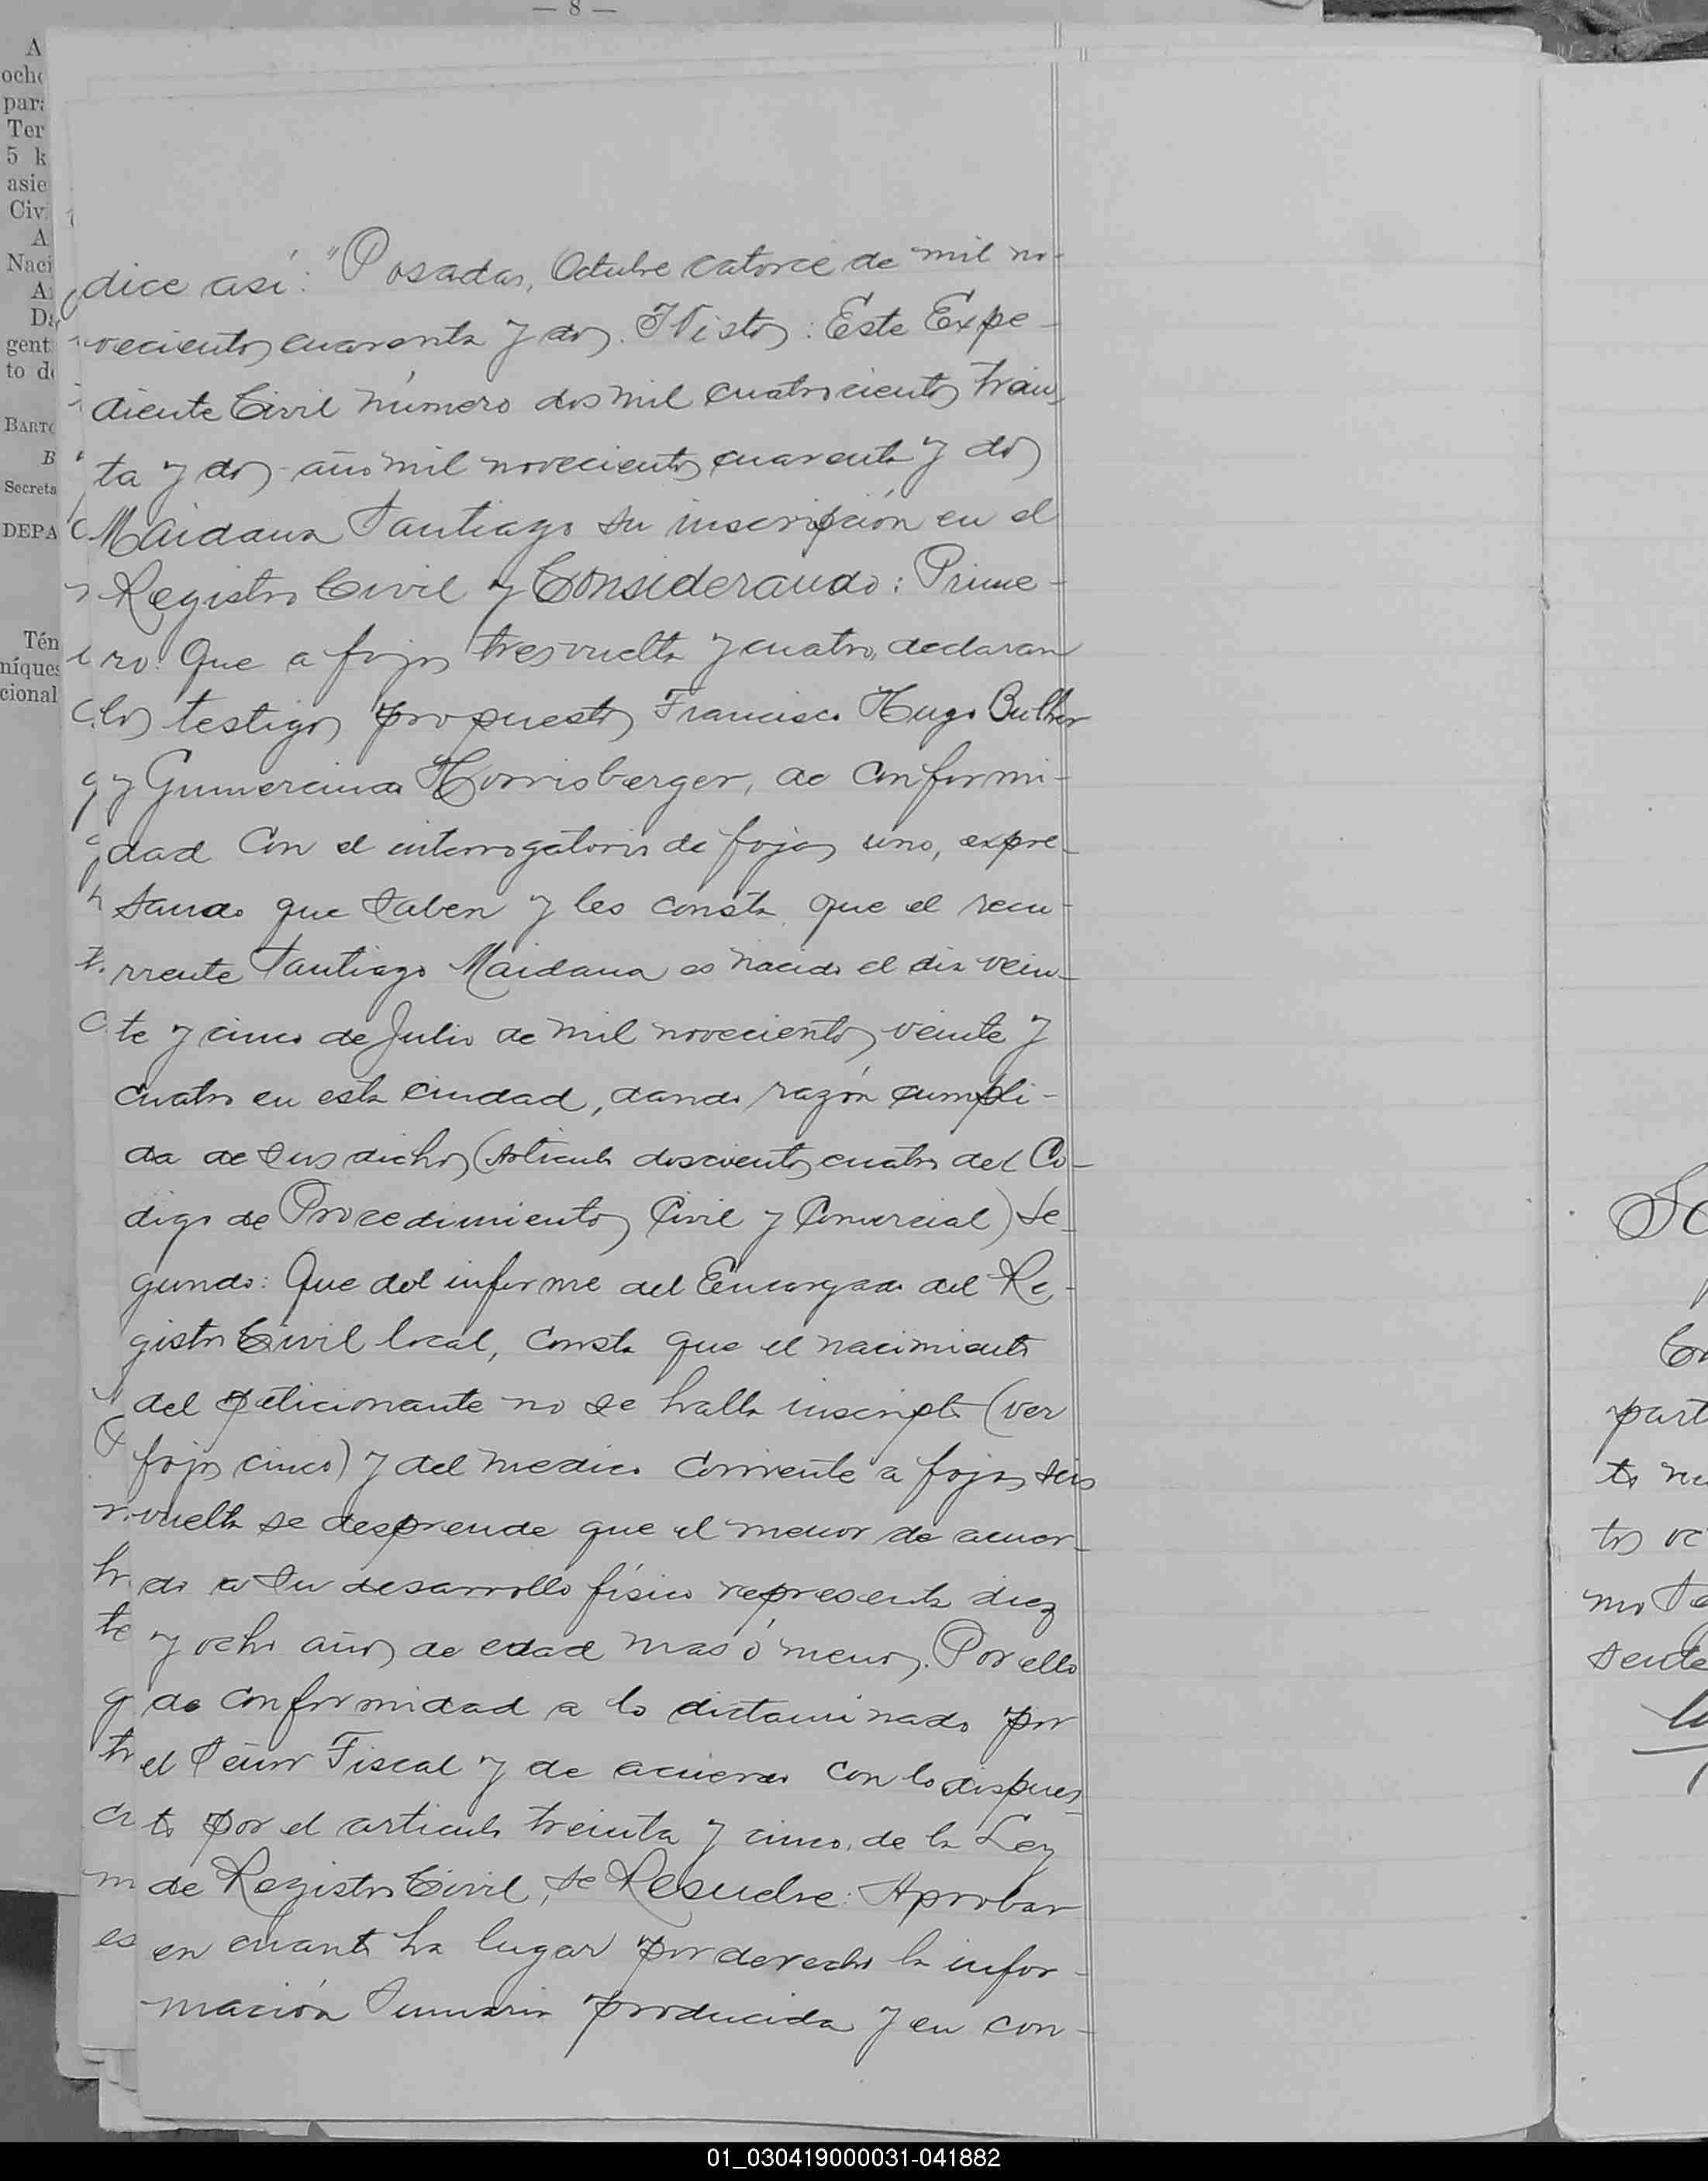 — 8 —
A
och
par
Ter
5 k
asie
Civ
A
Naci
A
D
gent
to d
BARTO
B
Secreta
DEPA
Tén
níques
cional
dice así: "Posadas, Octubre catorce de mil no-
vecientos cuarenta y dos. Y Vistos: Este Expe-
diente Civil número dos mil cuatrocientos trein
ta y dos - año mil novecientos cuarenta y dos
Maidana Santiago su inscripción en el
Registro Civil y Considerando: Prime-
ro: Que a fojas tres vuelta y cuatro, declaran
los testigos propuestos Francisco Hugo
y Gumercindo Horrisberger, de conformi-
dad con el interrogatorio de fojas uno, expre-
sando que saben y les consta que el recu-
rrente Santiago Maidana es nacido el dia vein-
te y cinco de Julio de mil novecientos veinte y
cuatro en esta ciudad, dando razón cumpli-
da de sus dichos (Articulo doscientos cuatro del Co-
digo de Procedimientos Civil y Comercial) Se-
gundo: Que del informe del Encargado del Re-
gistro Civil local, consta que el nacimiento
del peticionante no se halla inscripto (ver
fojas cinco) y del medico corriente a fojas seis
vuelta se desprende que el menor de acuer-
do a su desarrollo físico representa diez
y ocho años de edad mas ó menos. Por ello
de conformidad a lo dictaminado por
el Señor Fiscal y de acuerdo con lo dispues-
to por el articulo treinta y cinco, de la Ley
de Registro Civil, se Resuelve: Aprobar
en cuanto ha lugar por derecho la infor-
mación Sumaria producida y en con-
part
sente
01_030419000031-041882